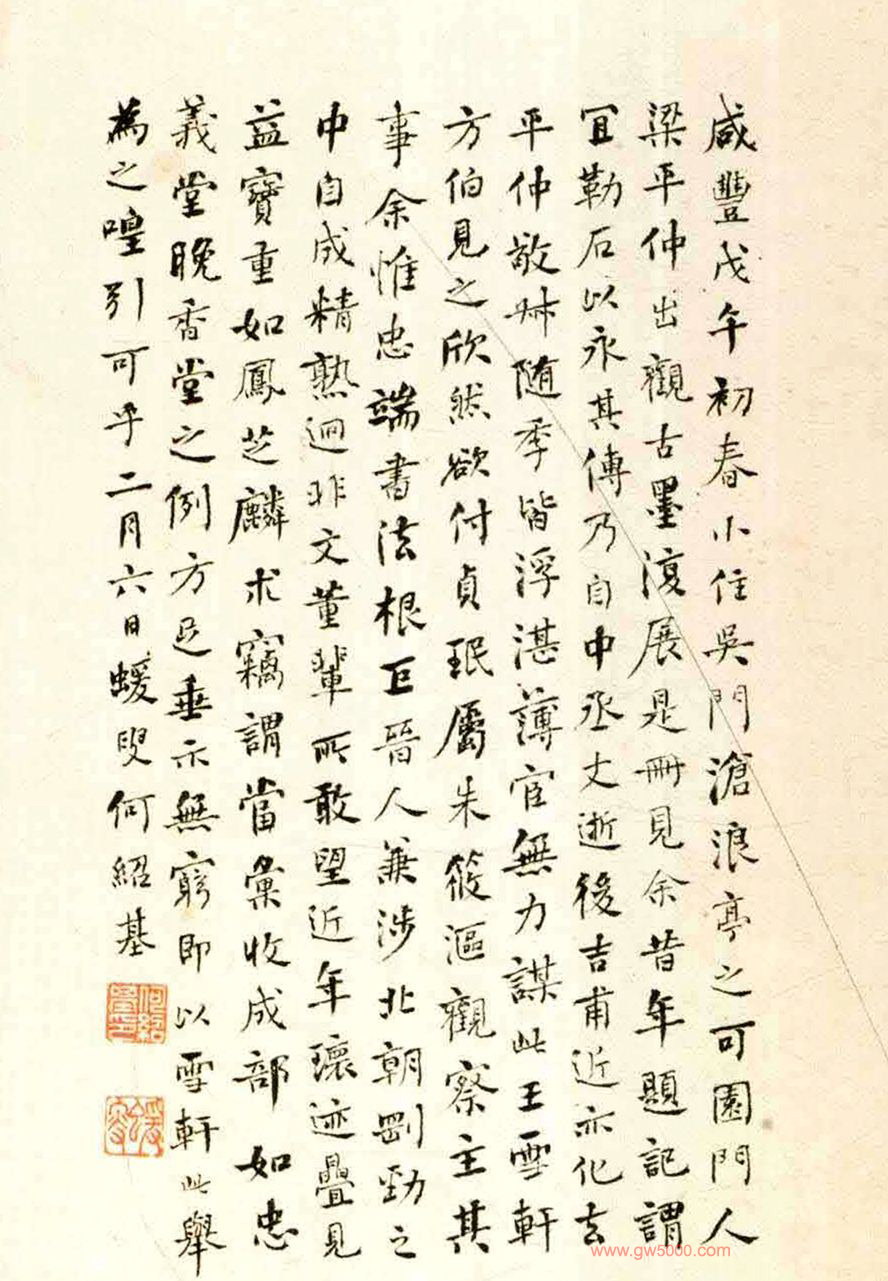 咸豐戊午初春小住吳門滄浪亭之可園門人
梁平仲出觀古墨復展是冊見余昔年題記謂
宜勒石以永其傳乃自中丞丈逝後吉甫近亦化去
平仲敬叔隨季皆浮湛薄宦無力謀此王雪軒
方伯見之欣然欲付貞珉屬朱筱漚觀察主其
事余惟忠端書法根巨晉人兼涉北朝剛勁之
中自成精熟迥非文董輩所敢望近年瓌迹疊見
益寶重如鳳芝麟朮竊謂當彙收成部如忠
義堂晚香堂之例方足垂示無窮即以雪軒此舉
為之喤引可乎二月六日蝯叟何紹基
www.gw5000.com